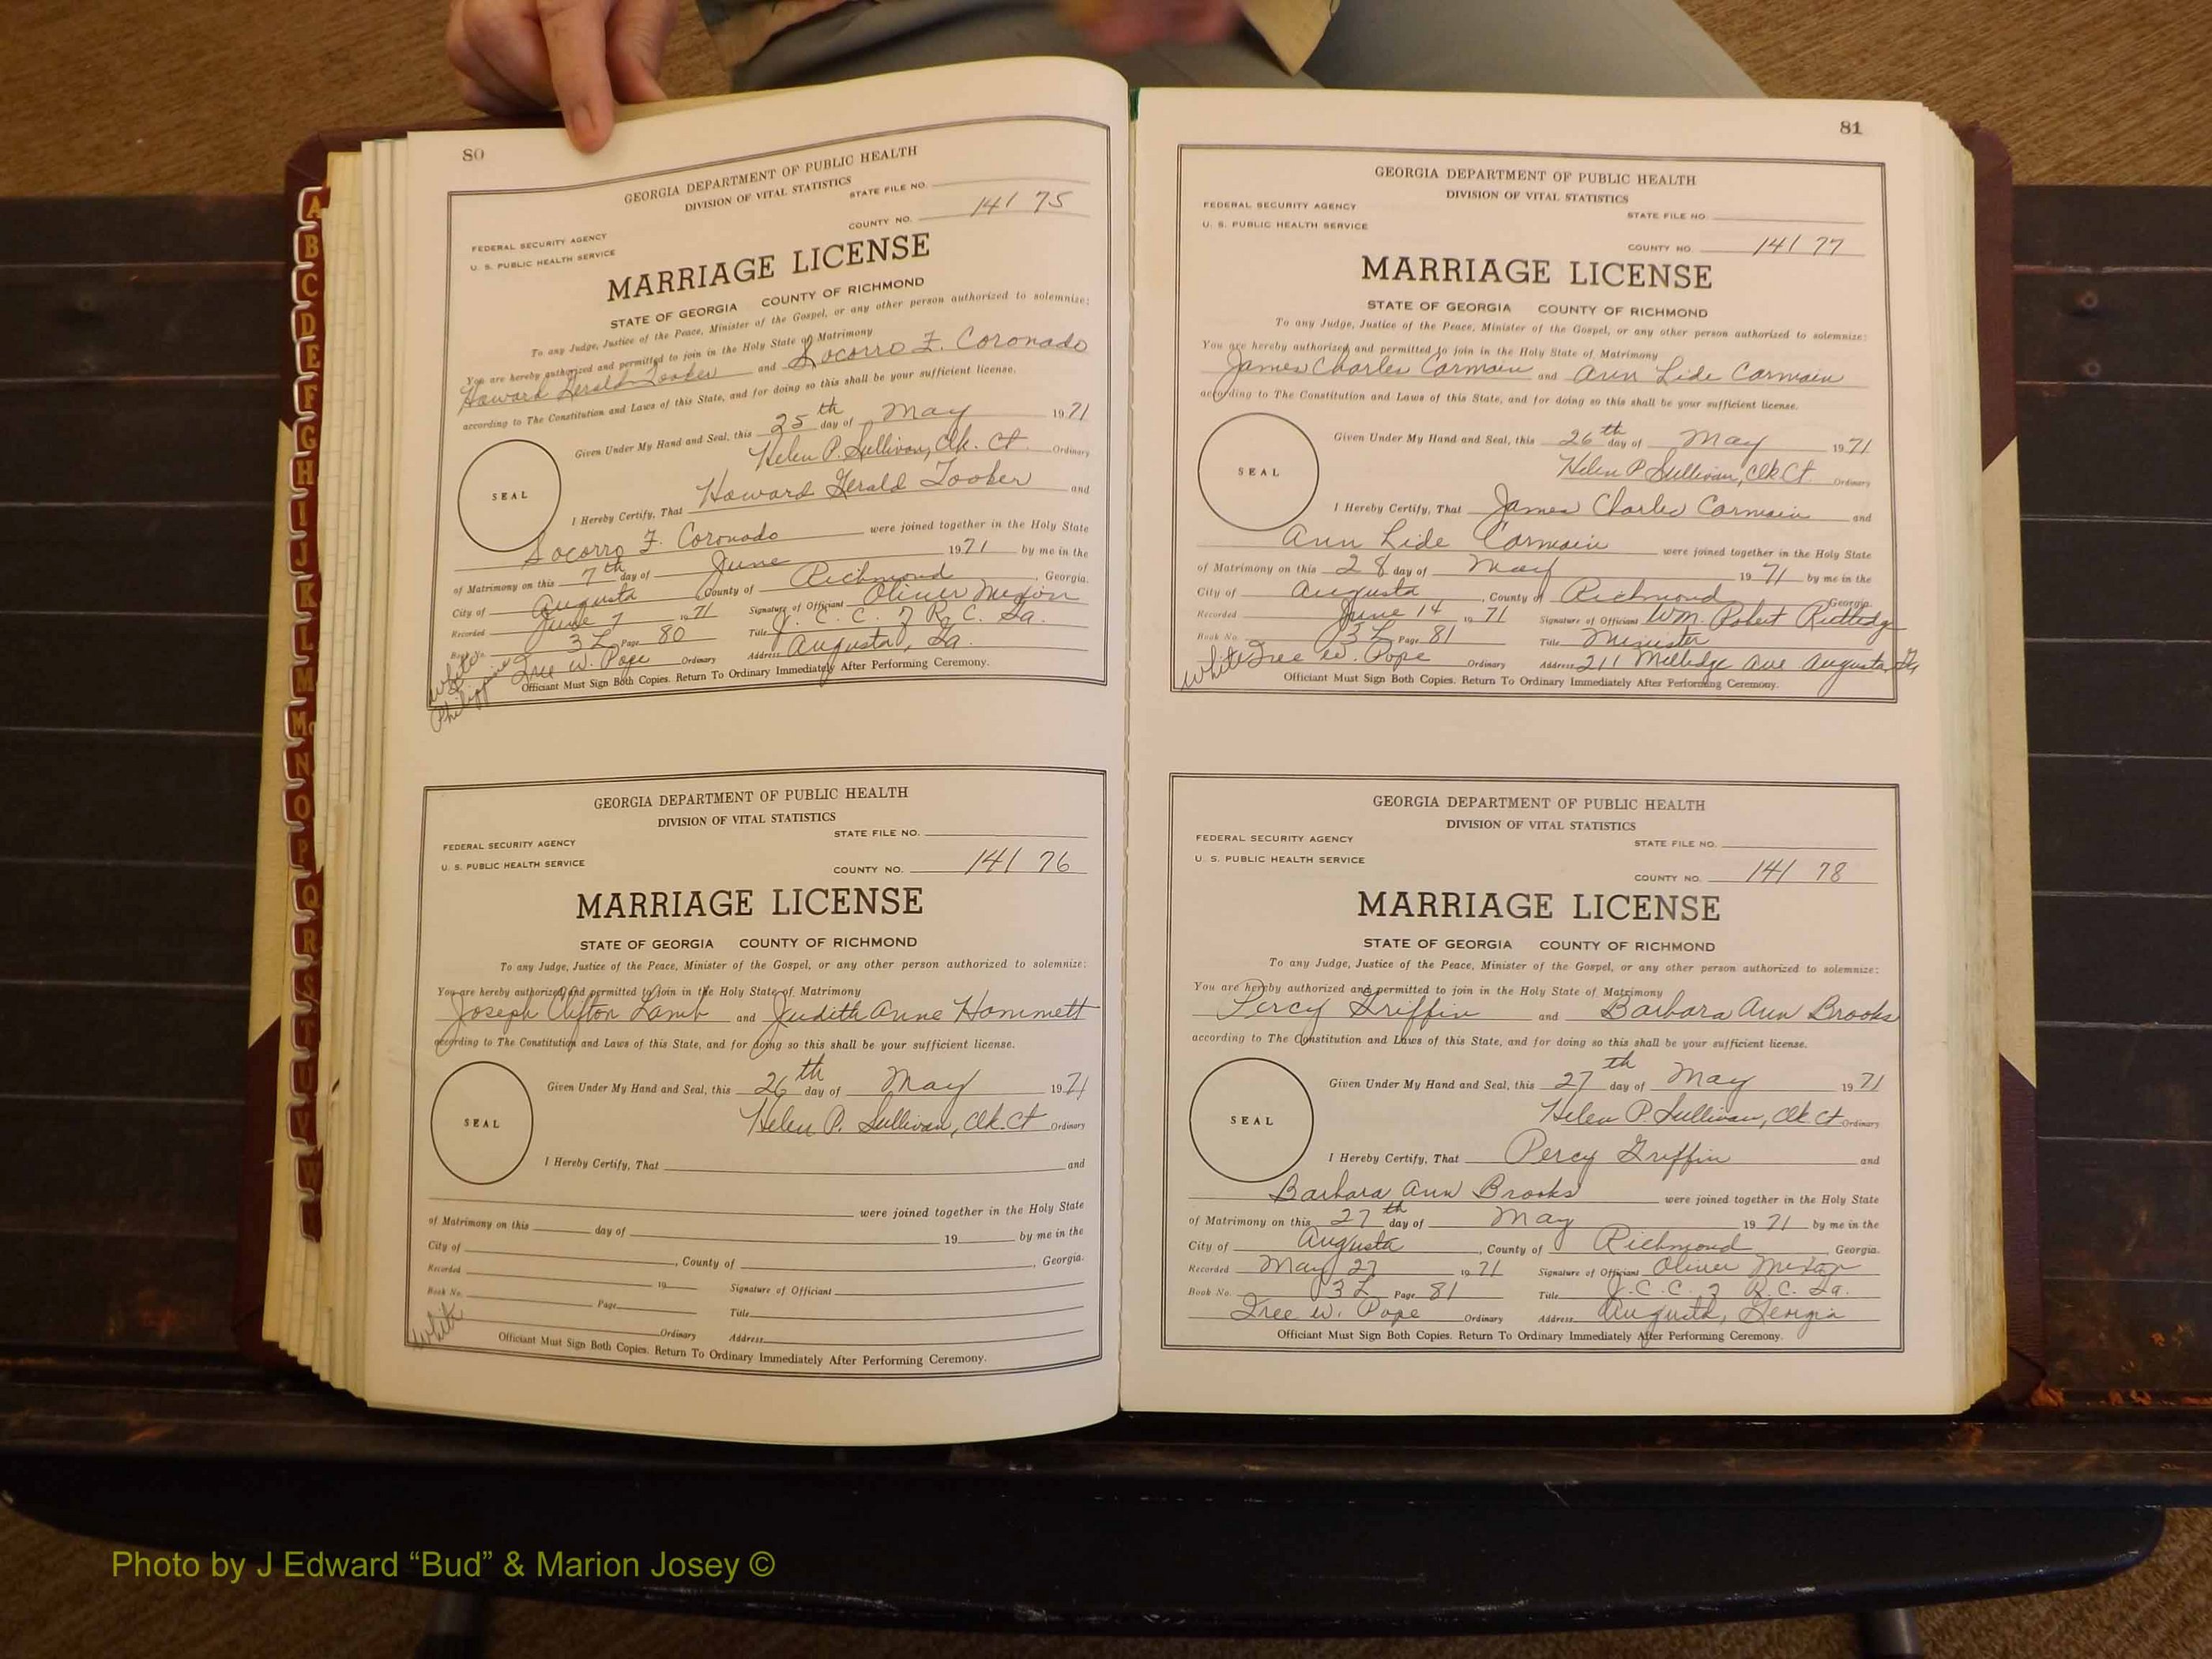 80
GEORGIA DEPARTMENT OF PUBLIC HEALTH
DIVISION OF VITAL STATISTICS
STATE FILE NO.
COUNTY NO. 141 75
FEDERAL SECURITY AGENCY
U. S. PUBLIC HEALTH SERVICE
MARRIAGE LICENSE
STATE OF GEORGIA COUNTY OF RICHMOND
To any Judge, Justice of the Peace, Minister of the Gospel, or any other person authorized to solemnize:
You are hereby authorized and permitted to join in the Holy State of Matrimony
Howard Gerald Tooker and Socorro F. Coronado
according to The Constitution and Laws of this State, and for doing so this shall be your sufficient license.
Given Under My Hand and Seal, this 25th day of May 1971
Helen P. Sullivan, Clk. Ct. Ordinary
SEAL
I Hereby Certify, That Howard Gerald Tooker and
Socorro F. Coronado were joined together in the Holy State
of Matrimony on this 7th day of June 1971 by me in the
City of Augusta County of Richmond, Georgia.
Recorded June 7 1971 Signature of Officiant Oliver Mixon
Book No. 3L Page 80 Title J. C. C. R. C. Ga.
Iree W. Pope Ordinary Address Augusta, Ga.
Officiant Must Sign Both Copies. Return To Ordinary Immediately After Performing Ceremony.
white
Philippine
GEORGIA DEPARTMENT OF PUBLIC HEALTH
DIVISION OF VITAL STATISTICS
STATE FILE NO.
FEDERAL SECURITY AGENCY
U. S. PUBLIC HEALTH SERVICE
COUNTY NO. 141 76
MARRIAGE LICENSE
STATE OF GEORGIA COUNTY OF RICHMOND
To any Judge, Justice of the Peace, Minister of the Gospel, or any other person authorized to solemnize:
You are hereby authorized and permitted to join in the Holy State of Matrimony
Joseph Clifton Lamb and Judith Anne Hammett
according to The Constitution and Laws of this State, and for doing so this shall be your sufficient license.
Given Under My Hand and Seal, this 26th day of May 1971
Helen P. Sullivan, Clk. Ct Ordinary
SEAL
I Hereby Certify, That and
were joined together in the Holy State
of Matrimony on this day of 19 by me in the
City of , County of , Georgia.
Recorded 19 Signature of Officiant
Book No. Page Title
Ordinary Address
white
Officiant Must Sign Both Copies. Return To Ordinary Immediately After Performing Ceremony.
81
GEORGIA DEPARTMENT OF PUBLIC HEALTH
DIVISION OF VITAL STATISTICS
FEDERAL SECURITY AGENCY
STATE FILE NO.
U. S. PUBLIC HEALTH SERVICE
COUNTY NO 141 77
MARRIAGE LICENSE
STATE OF GEORGIA COUNTY OF RICHMOND
To any Judge, Justice of the Peace, Minister of the Gospel, or any other person authorized to solemnize:
You are hereby authorized and permitted to join in the Holy State of Matrimony
James Charles Carmain and Ann Lide Carmain
according to The Constitution and Laws of this State, and for doing so this shall be your sufficient license.
Given Under My Hand and Seal, this 26th day of May 1971
Helen P Sullivan, Clk. Ct. Ordinary
SEAL
I Hereby Certify, That James Charles Carmain and
Ann Lide Carmain were joined together in the Holy State
of Matrimony on this 28 day of May 1971 by me in the
City of Augusta, County of Richmond Georgia.
Recorded June 14 1971 Signature of Officiant Wm. Robert Rutledge
Book No 3L Page 81 Title Minister
white Iree W. Pope Ordinary Address 211 Milledge Ave Augusta, Ga,
Officiant Must Sign Both Copies. Return To Ordinary Immediately After Performing Ceremony.
GEORGIA DEPARTMENT OF PUBLIC HEALTH
DIVISION OF VITAL STATISTICS
FEDERAL SECURITY AGENCY
STATE FILE NO.
U. S. PUBLIC HEALTH SERVICE
COUNTY NO. 141 78
MARRIAGE LICENSE
STATE OF GEORGIA COUNTY OF RICHMOND
To any Judge, Justice of the Peace, Minister of the Gospel, or any other person authorized to solemnize:
You are hereby authorized and permitted to join in the Holy State of Matrimony
Percy Griffin and Barbara Ann Brooks
according to The Constitution and Laws of this State, and for doing so this shall be your sufficient license.
Given Under My Hand and Seal, this 27th day of May 1971
Helen P. Sullivan, Clk. Ct Ordinary
SEAL
I Hereby Certify, That Percy Griffin and
Barbara Ann Brooks were joined together in the Holy State
of Matrimony on this 27th day of May 1971 by me in the
City of Augusta, County of Richmond, Georgia.
Recorded May 27 1971 Signature of Officiant Oliver Mixon
Book No. 3L Page 81 Title J. C. C. R. C. Ga.
Iree W. Pope Ordinary Address Augusta, Georgia
Officiant Must Sign Both Copies. Return To Ordinary Immediately After Performing Ceremony.
A
B
C
D
E
F
G
H
I
J
K
L
M
Mc
N
O
P
Q
R
S
T
U
V
W
Photo by J Edward “Bud” & Marion Josey ©